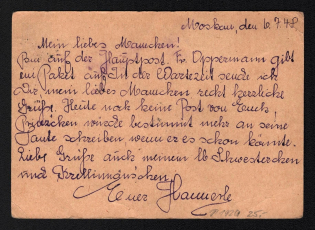 Moskau, den 6.7.42
Mein liebes Mamchen!
Bin auf der Hauptpost. Fr. Oppermann gibt
ein Paket auf. In der Wartezeit sende ich
Dir mein liebes Mamchen recht herzliche
Grüße. Heute noch keine Post von Euch.
würde bestimmt mehr an seine
Tante schreiben wenn er es schon könnte.
Liebe Grüße auch meinem lb Schwesterchen
und
Euer Hannerle
25.-